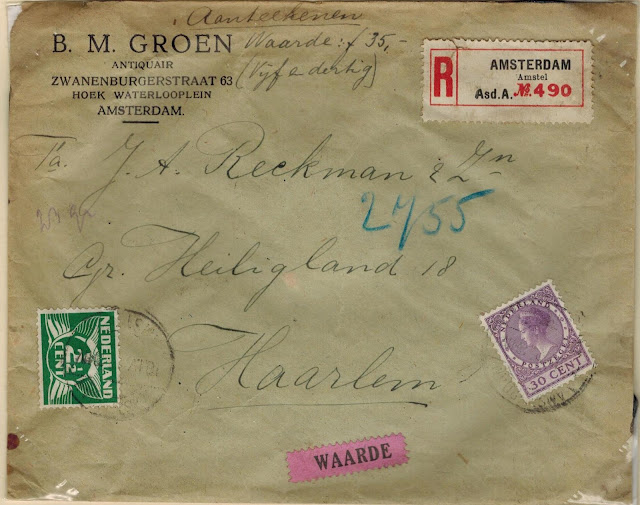 Aanteekenen
B. M. GROEN
ANTIQUAIR
ZWANENBURGERSTRAAT 63
HOEK WATERLOOPLEIN
AMSTERDAM.
Waarde: f 35,-
(Vijf e dertig)
R
AMSTERDAM
Amstel
Asd.A. № 490
Fa. J. A. Reckman & Zn
2755
Gr. Heiligland 18
Haarlem
NEDERLAND
2½
CENT
NEDERLAND
POSTZEGEL
30 CENT
WAARDE